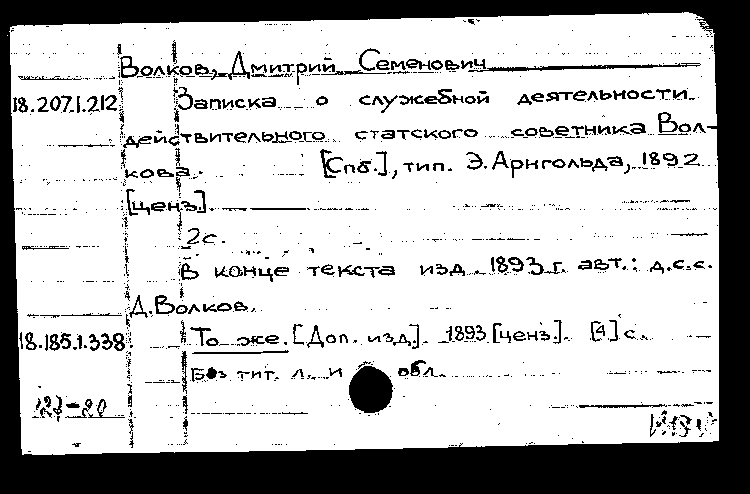 Волков, Дмитрий Семенович
18.207.1.212 Записка о служебной деятельности
действительного статского советника Вол-
кова. [Спб.], тип. Э. Арнгольда, 1892
[ценз].
2с.
В конце текста изд. 1893 г. авт.: д.с.с.
Д. Волков.
18.185.1.338 То же. [Доп. изд.]. 1893 [ценз]. [4] с.
Без тит. л. и обл.